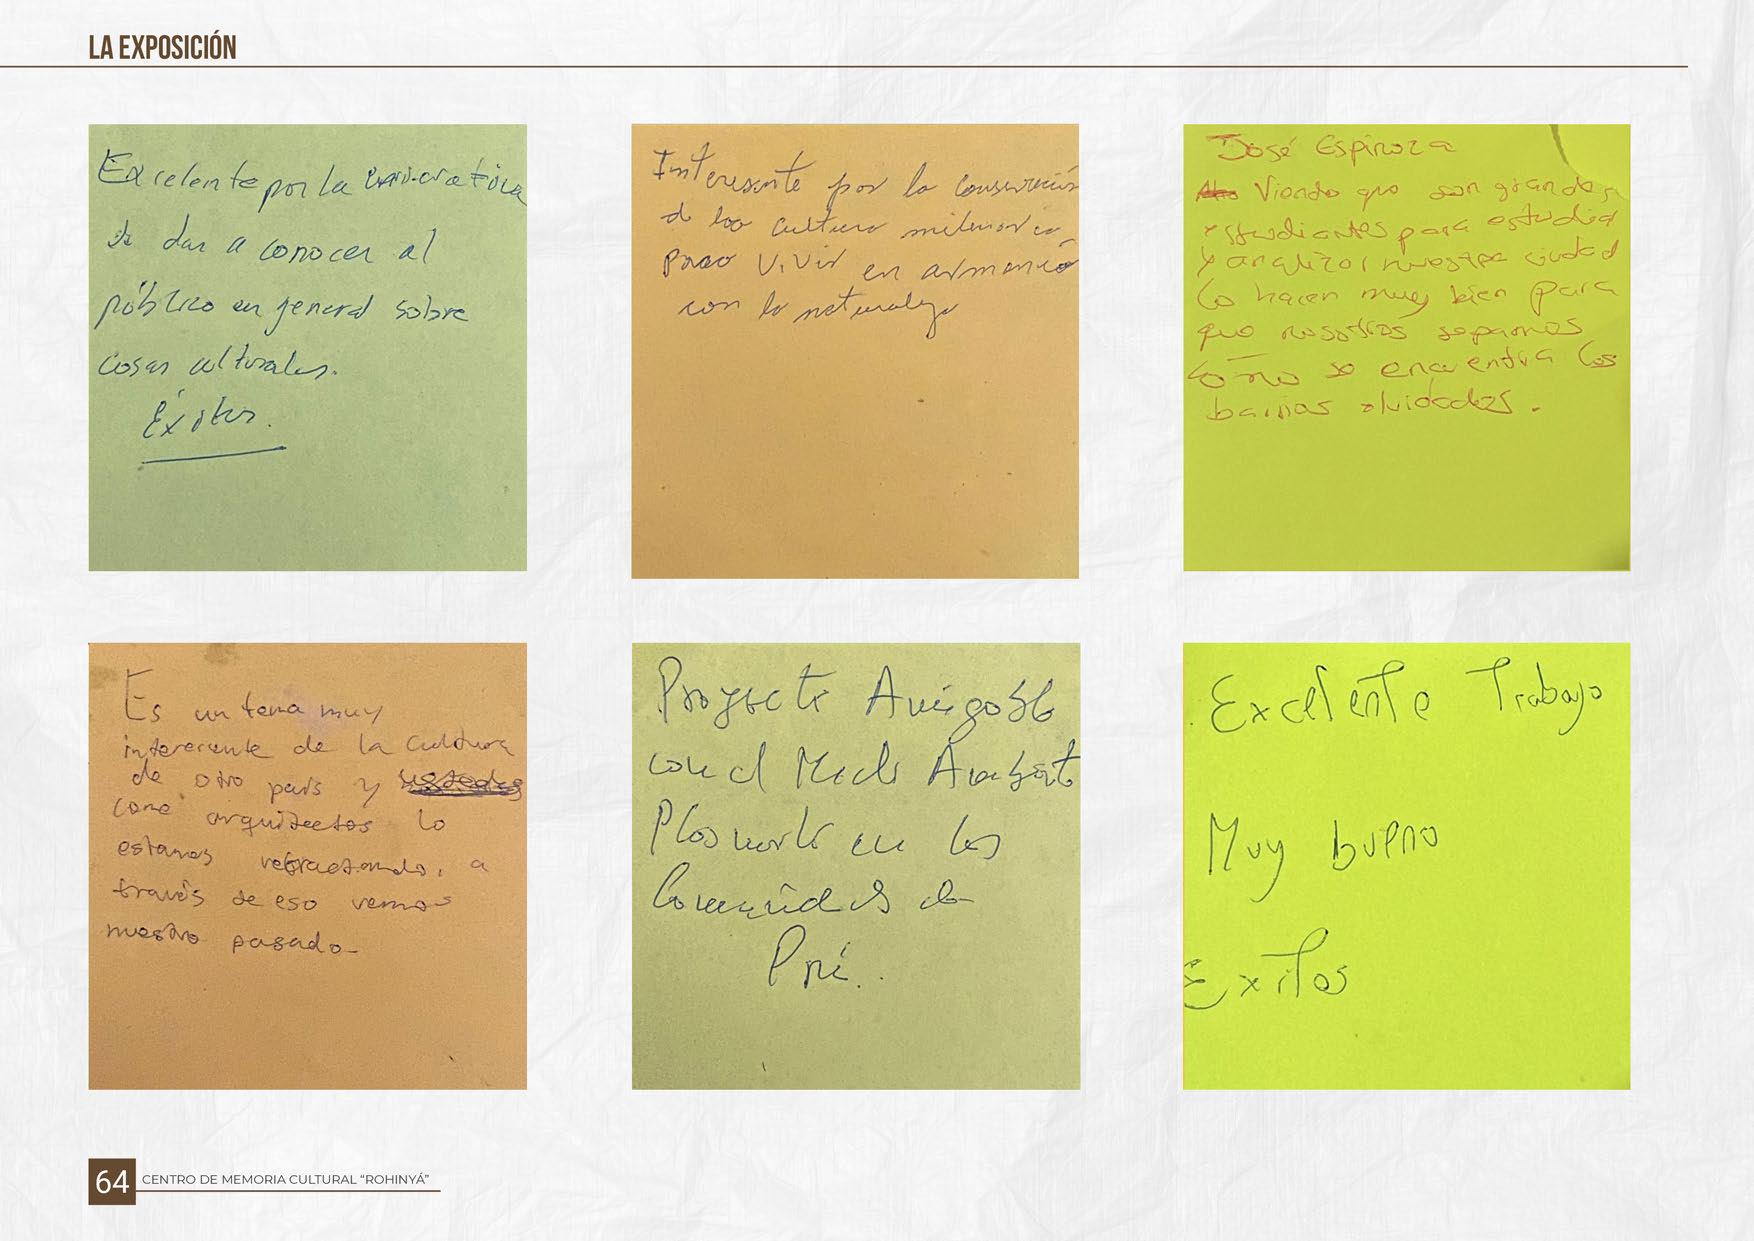 LA EXPOSICIÓN
Excelente por la
de dar a conocer al
público en general sobre
cosas culturales.
Éxitos.
Interesante por la conservación
de las cultura milenaria
para vivir en armonía
con la naturaleza
José Espinoza
Viendo que son grandes
estudiantes para estudiar
y analizar nuestra ciudad
lo hacen muy bien para
que nosotros sepamos
como se encuentra los
barrios olvidados.
Es un tema muy
interesante de la cultura
de otro país y ustedes
como arquitectos lo
estamos retractando, a
través de eso vemos
nuestro pasado
Proyecto Amigable
con el Medio Ambiente
en las
Comunidades de
Excelente Trabajo
Muy bueno
Exitos
64 CENTRO DE MEMORIA CULTURAL “ROHINYÁ”